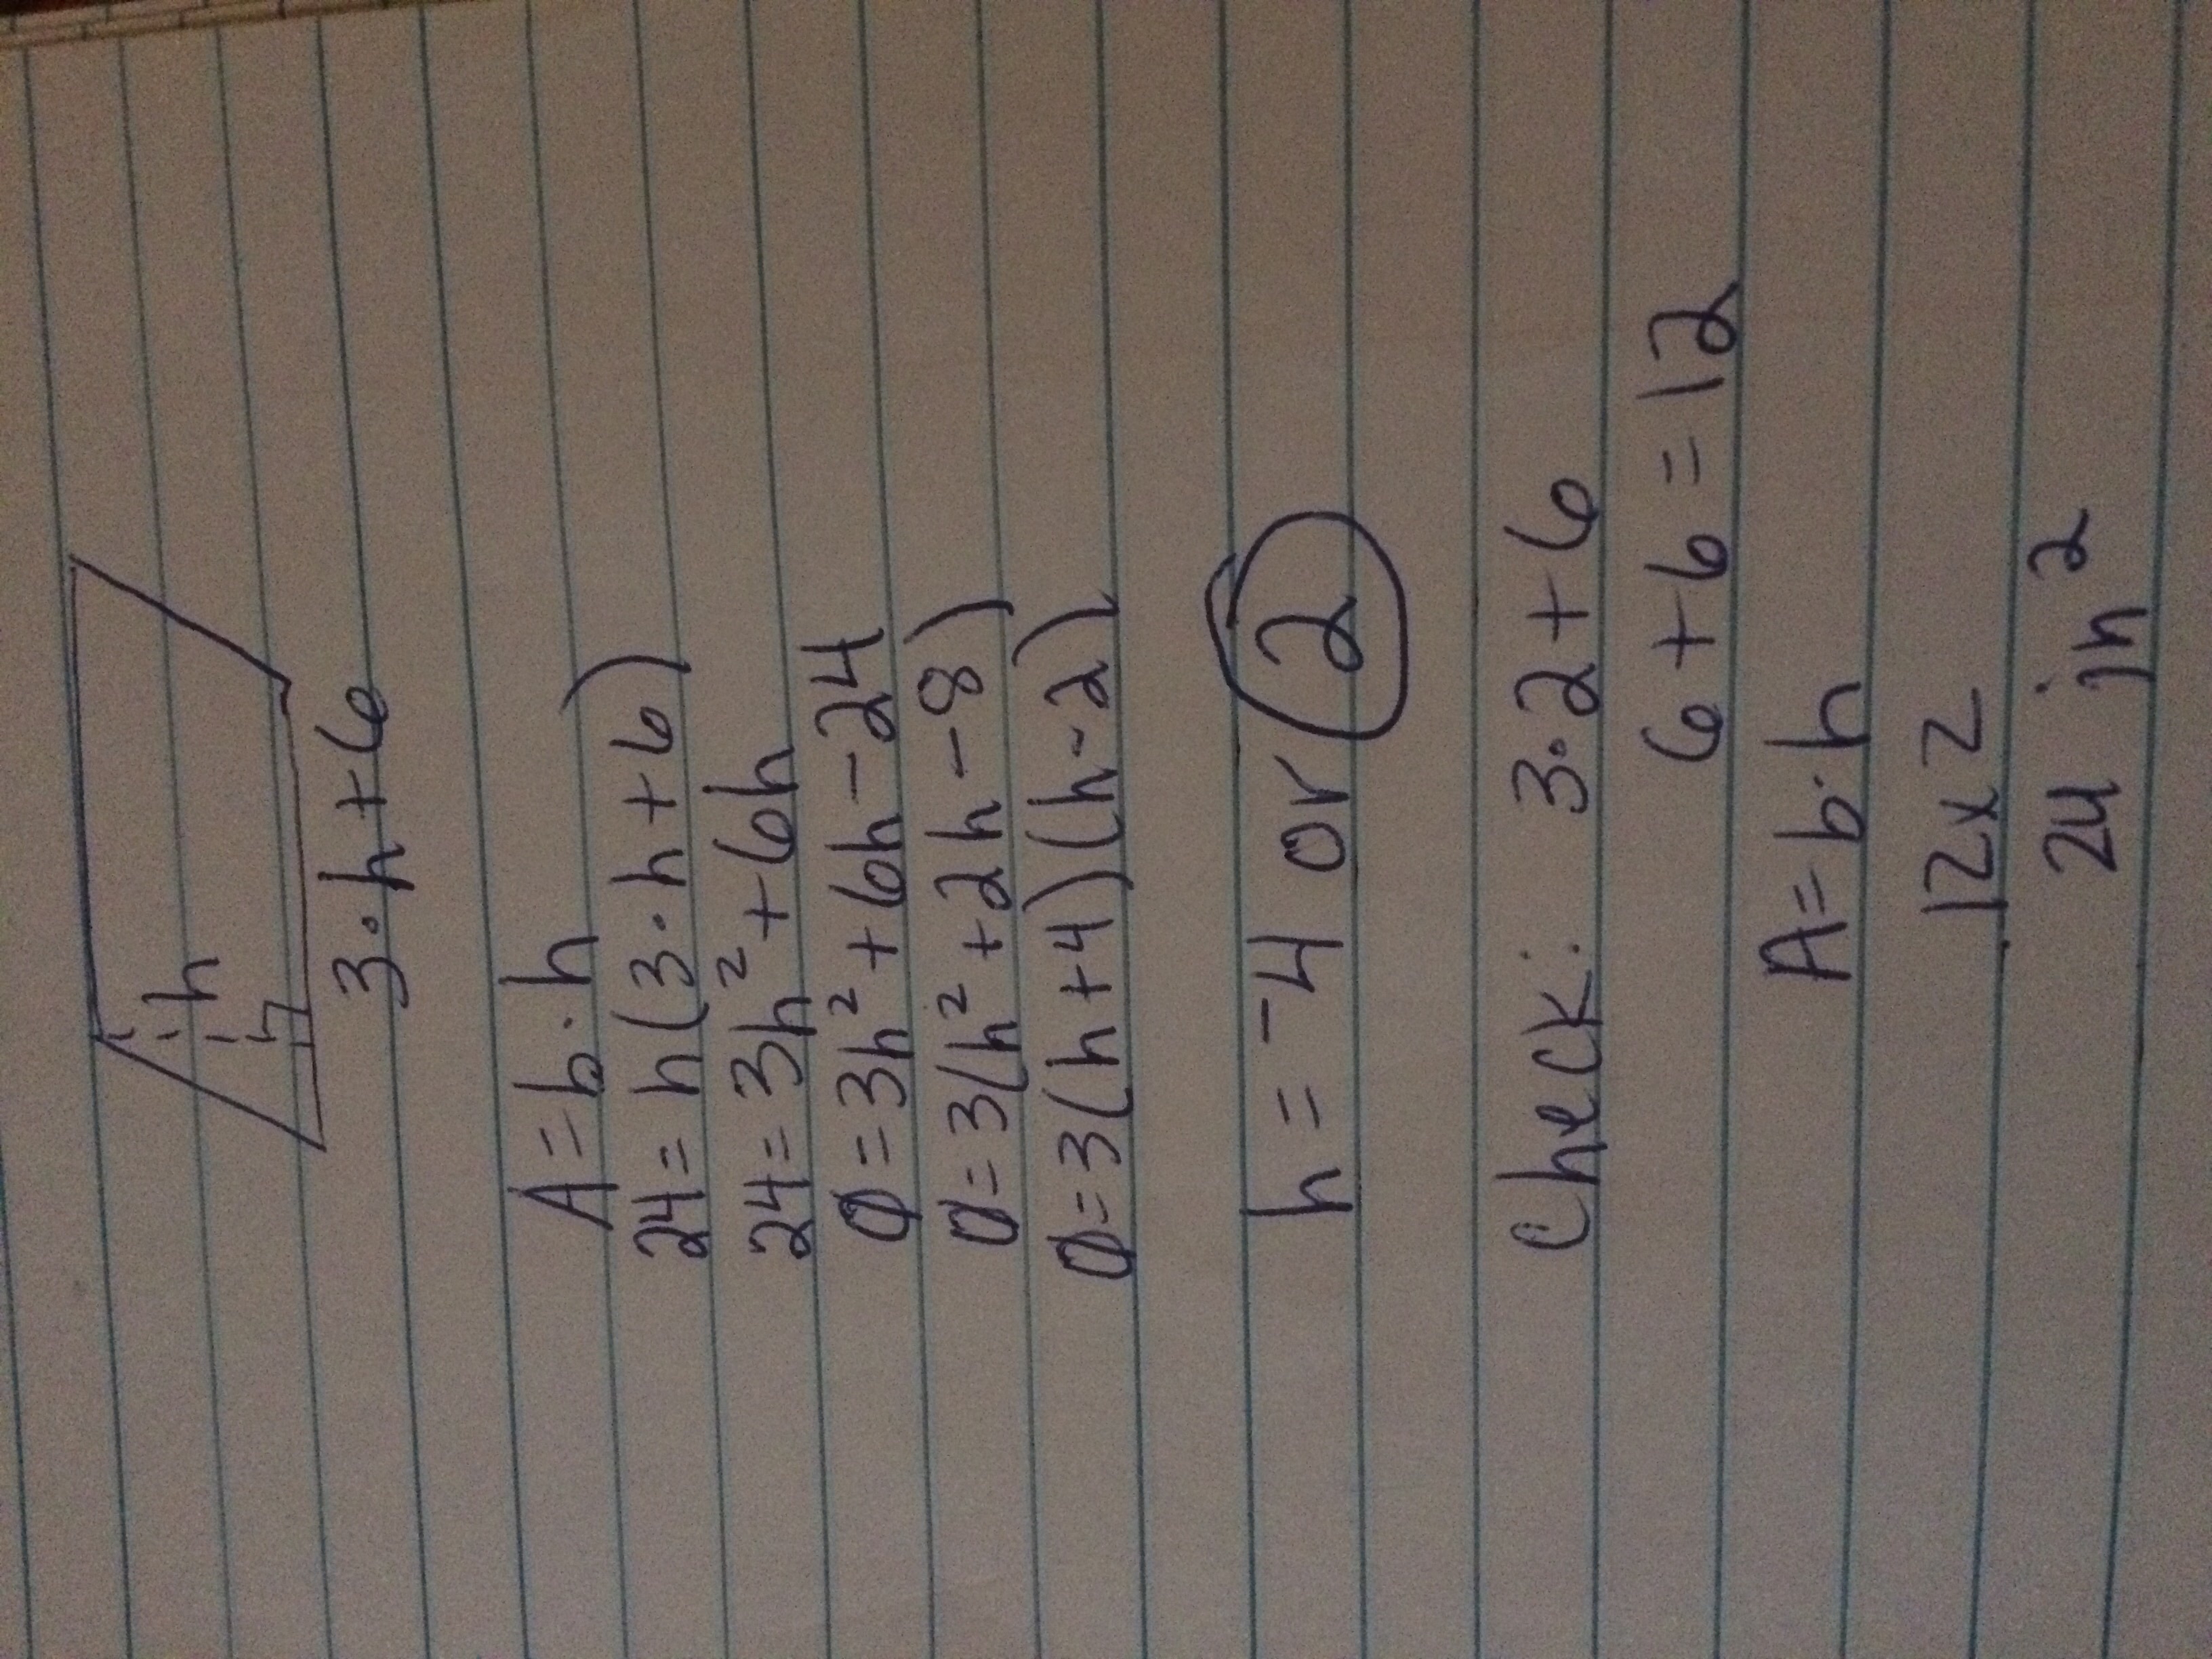 h
3·h+6
A=b·h
24=h(3·h+6)
24=3h²+6h
0=3h²+6h-24
0=3(h²+2h-8)
0=3(h+4)(h-2)
h=-4 or 2
Check: 3·2+6
6+6=12
A=b·h
12x2
24 in²